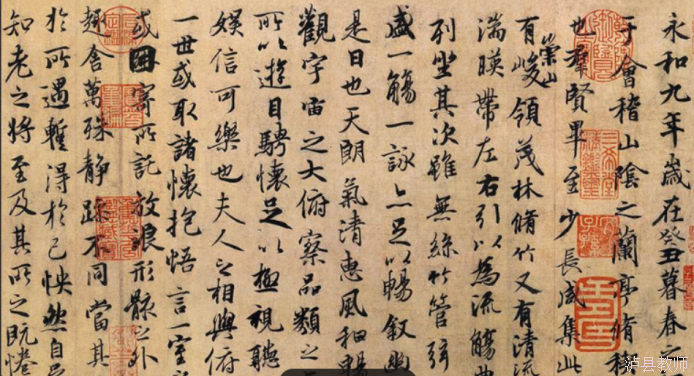 永和九年歲在癸丑暮春之
于會稽山陰之蘭亭脩稧
也羣賢畢至少長咸集此
有崇山峻領茂林脩竹又有清流
湍暎帶左右引以為流觴曲
列坐其次雖無絲竹管弦
盛一觴一詠亦足以暢叙幽
是日也天朗氣清惠風和暢
觀宇宙之大俯察品類之
所以遊目騁懷足以極視聽
娛信可樂也夫人之相與俯
一世或取諸懷抱悟言一室
或因寄所託放浪形骸之外
趣舍萬殊静躁不同當其
於所遇蹔得於己怏然自
知老之將至及其所之既惓
泸县教师